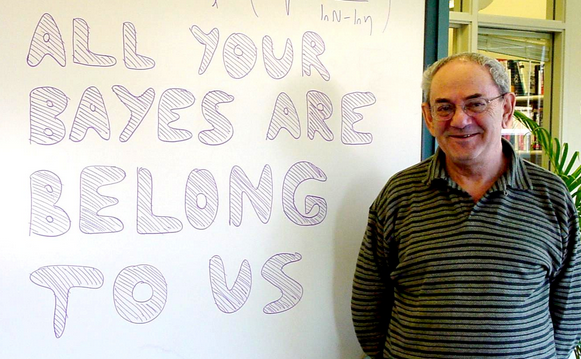 ln N - ln η
ALL YOUR
BAYES ARE
BELONG
TO US